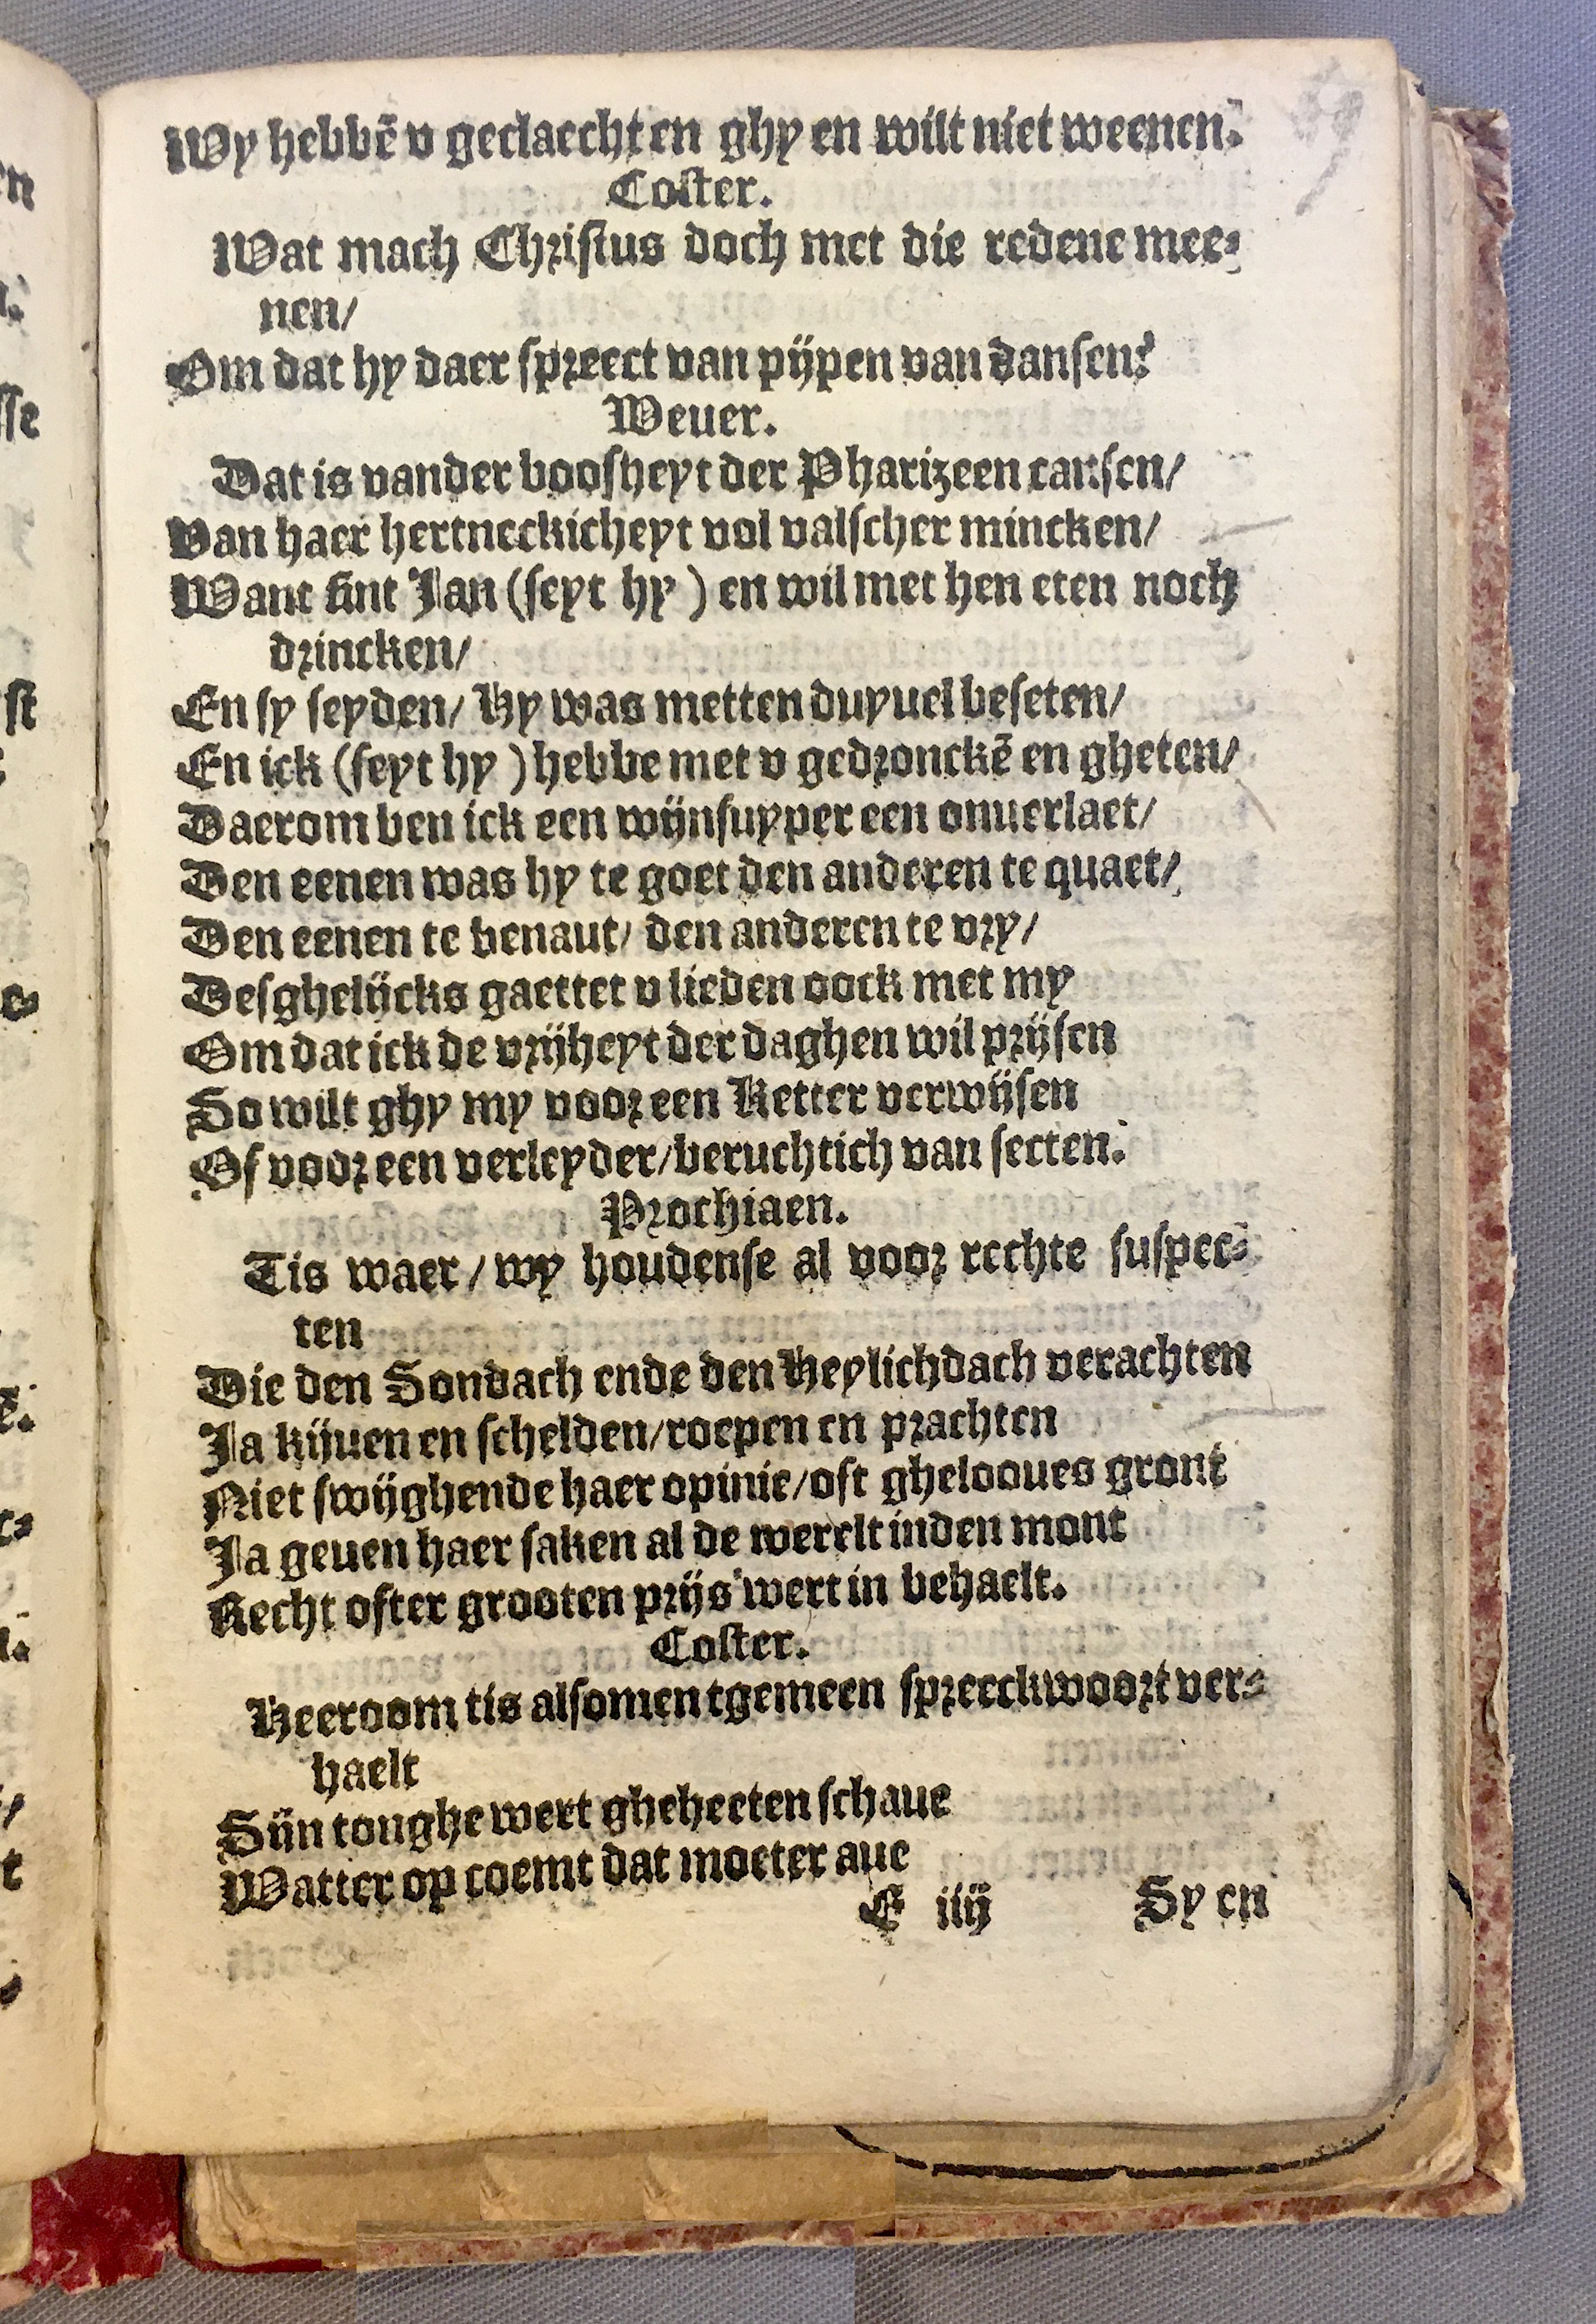 Wy hebbē v geclaecht en ghy en wilt niet weenen.
Coster.
Wat mach Christus doch met die redene mee-
nen/
Om dat hy daer spreect van pijpen van dansen?
Weuer.
Dat is vander boosheyt der Pharizeen cansen/
Van haer hertneckicheyt vol valscher mincken/
Want sint Jan (seyt hy) en wil met hen eten noch
drincken/
En sy seyden/ Hy was metten duyuel beseten/
En ick (seyt hy) hebbe met v gedronckē en gheten/
Daerom ben ick een wijnsuyper een onuerlaet/
Den eenen was hy te goet den anderen te quaet/
Den eenen te benaut/ den anderen te vry/
Desghelijcks gaettet v lieden oock met my
Om dat ick de vrijheyt der daghen wil prijsen
So wilt ghy my voor een Ketter verwijsen
Of voor een verleyder/beruchtich van secten.
Prochiaen.
Tis waer/wy houdense al voor rechte suspec-
ten
Die den Sondach ende den Heylichdach verachten
Ja kijuen en schelden/roepen en prachten
Niet swijghende haer opinie/oft ghelooues gront
Ja geuen haer saken al de werelt inden mont
Recht ofter grooten prijs wert in behaelt.
Coster.
Heeroom tis alsomen tgemeen spreeckwoort ver-
haelt
Sijn tonghe wert gheheeten schaue
Watter op coemt dat moeter aue
E iiij Sy en